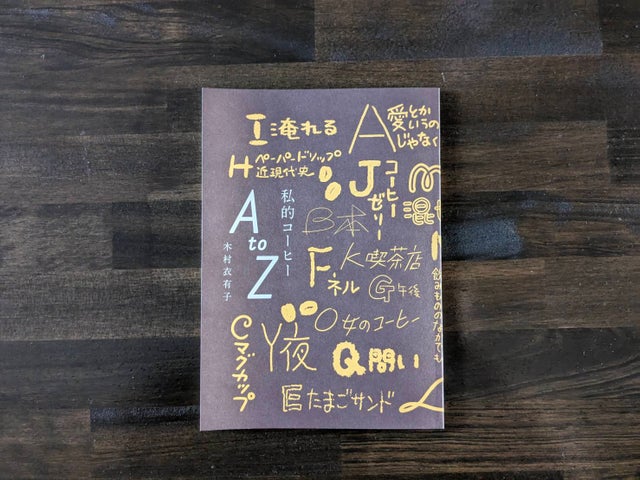 I 淹れる
A 愛とか
いうの
じゃなく
H ペーパードリップ
近現代史
J コーヒー
ゼリー
M
混
B 本
私的コーヒー
A to Z
木村衣有子
F ネル
K 喫茶店
G 午後
飲みもののなかでも
O 女のコーヒー
C マグカップ
Y 夜
Q 問い
E たまごサンド
L